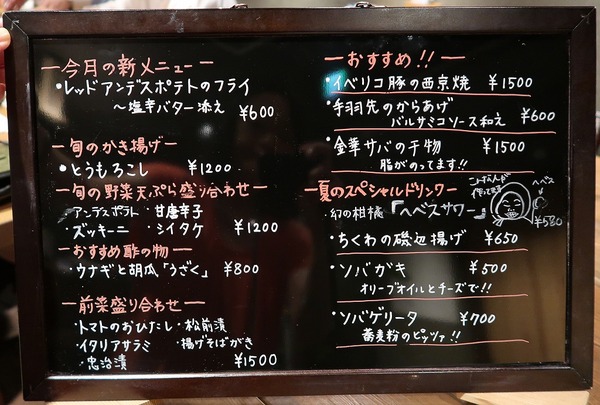 ー今月の新メニューー
・レッドアンデスポテトのフライ
〜塩辛バター添え ¥600
ー旬のかき揚げー
・とうもろこし ¥1200
ー旬の野菜天ぷら盛り合わせー
・アンデスポテト ・甘唐辛子
・ズッキーニ ・シイタケ ¥1200
ーおすすめ酢の物ー
・ウナギと胡瓜「うざく」 ¥800
ー前菜盛り合わせー
・トマトのおひたし ・松前漬
・イタリアサラミ ・揚げそばがき
・忠治漬 ¥1500
ーおすすめ!!ー
・イベリコ豚の西京焼 ¥1500
・手羽先のからあげ
バルサミコソース和え ¥600
・金華サバの干物 ¥1500
脂がのってます!!
ー夏のスペシャルドリンクー
・幻の柑橘「ヘベスサワー」
作ってます
ヘベス
¥580
・ちくわの磯辺揚げ ¥650
・ソバガキ ¥500
オリーブオイルとチーズで!!
・ソバゲリータ ¥700
蕎麦粉のピッツァ!!